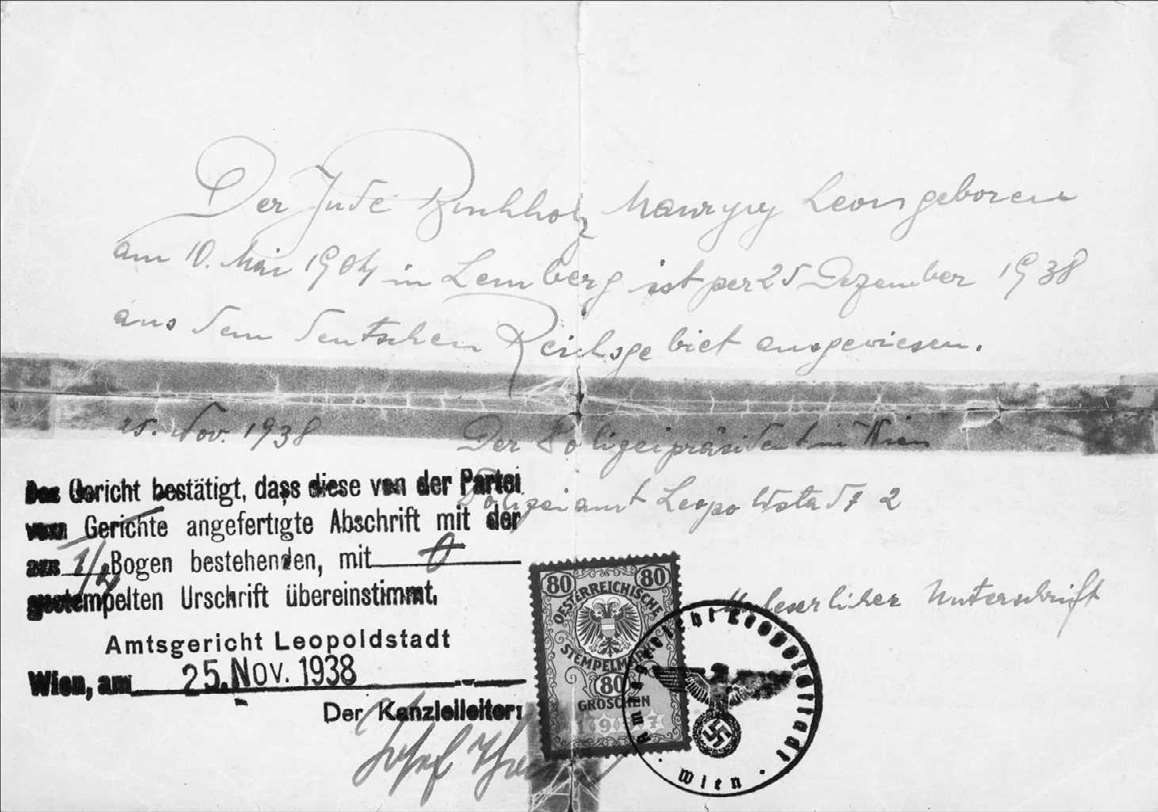 Der Jude Buchholz Maurycy Leon geboren
am 10. Mai 1904 in Lemberg ist per 25 Dezember 1938
aus dem deutschen Reichsgebiet ausgewiesen.
25. Nov. 1938
Der Polizeipräsident in Wien
Polizeiamt Leopoldstadt 2
Unleserlicher Unterschrift
Das Gericht bestätigt, dass diese von der Partei
vom Gerichte angefertigte Abschrift mit der
aus 1/2 Bogen bestehenden, mit 0
gestempelten Urschrift übereinstimmt.
Amtsgericht Leopoldstadt
Wien, am 25. Nov. 1938
Der Kanzleileiter:
Josef
80 80
OESTERREICHISCHE
STEMPELMARKE
80
GROSCHEN
Amtsgericht Leopoldstadt
Wien